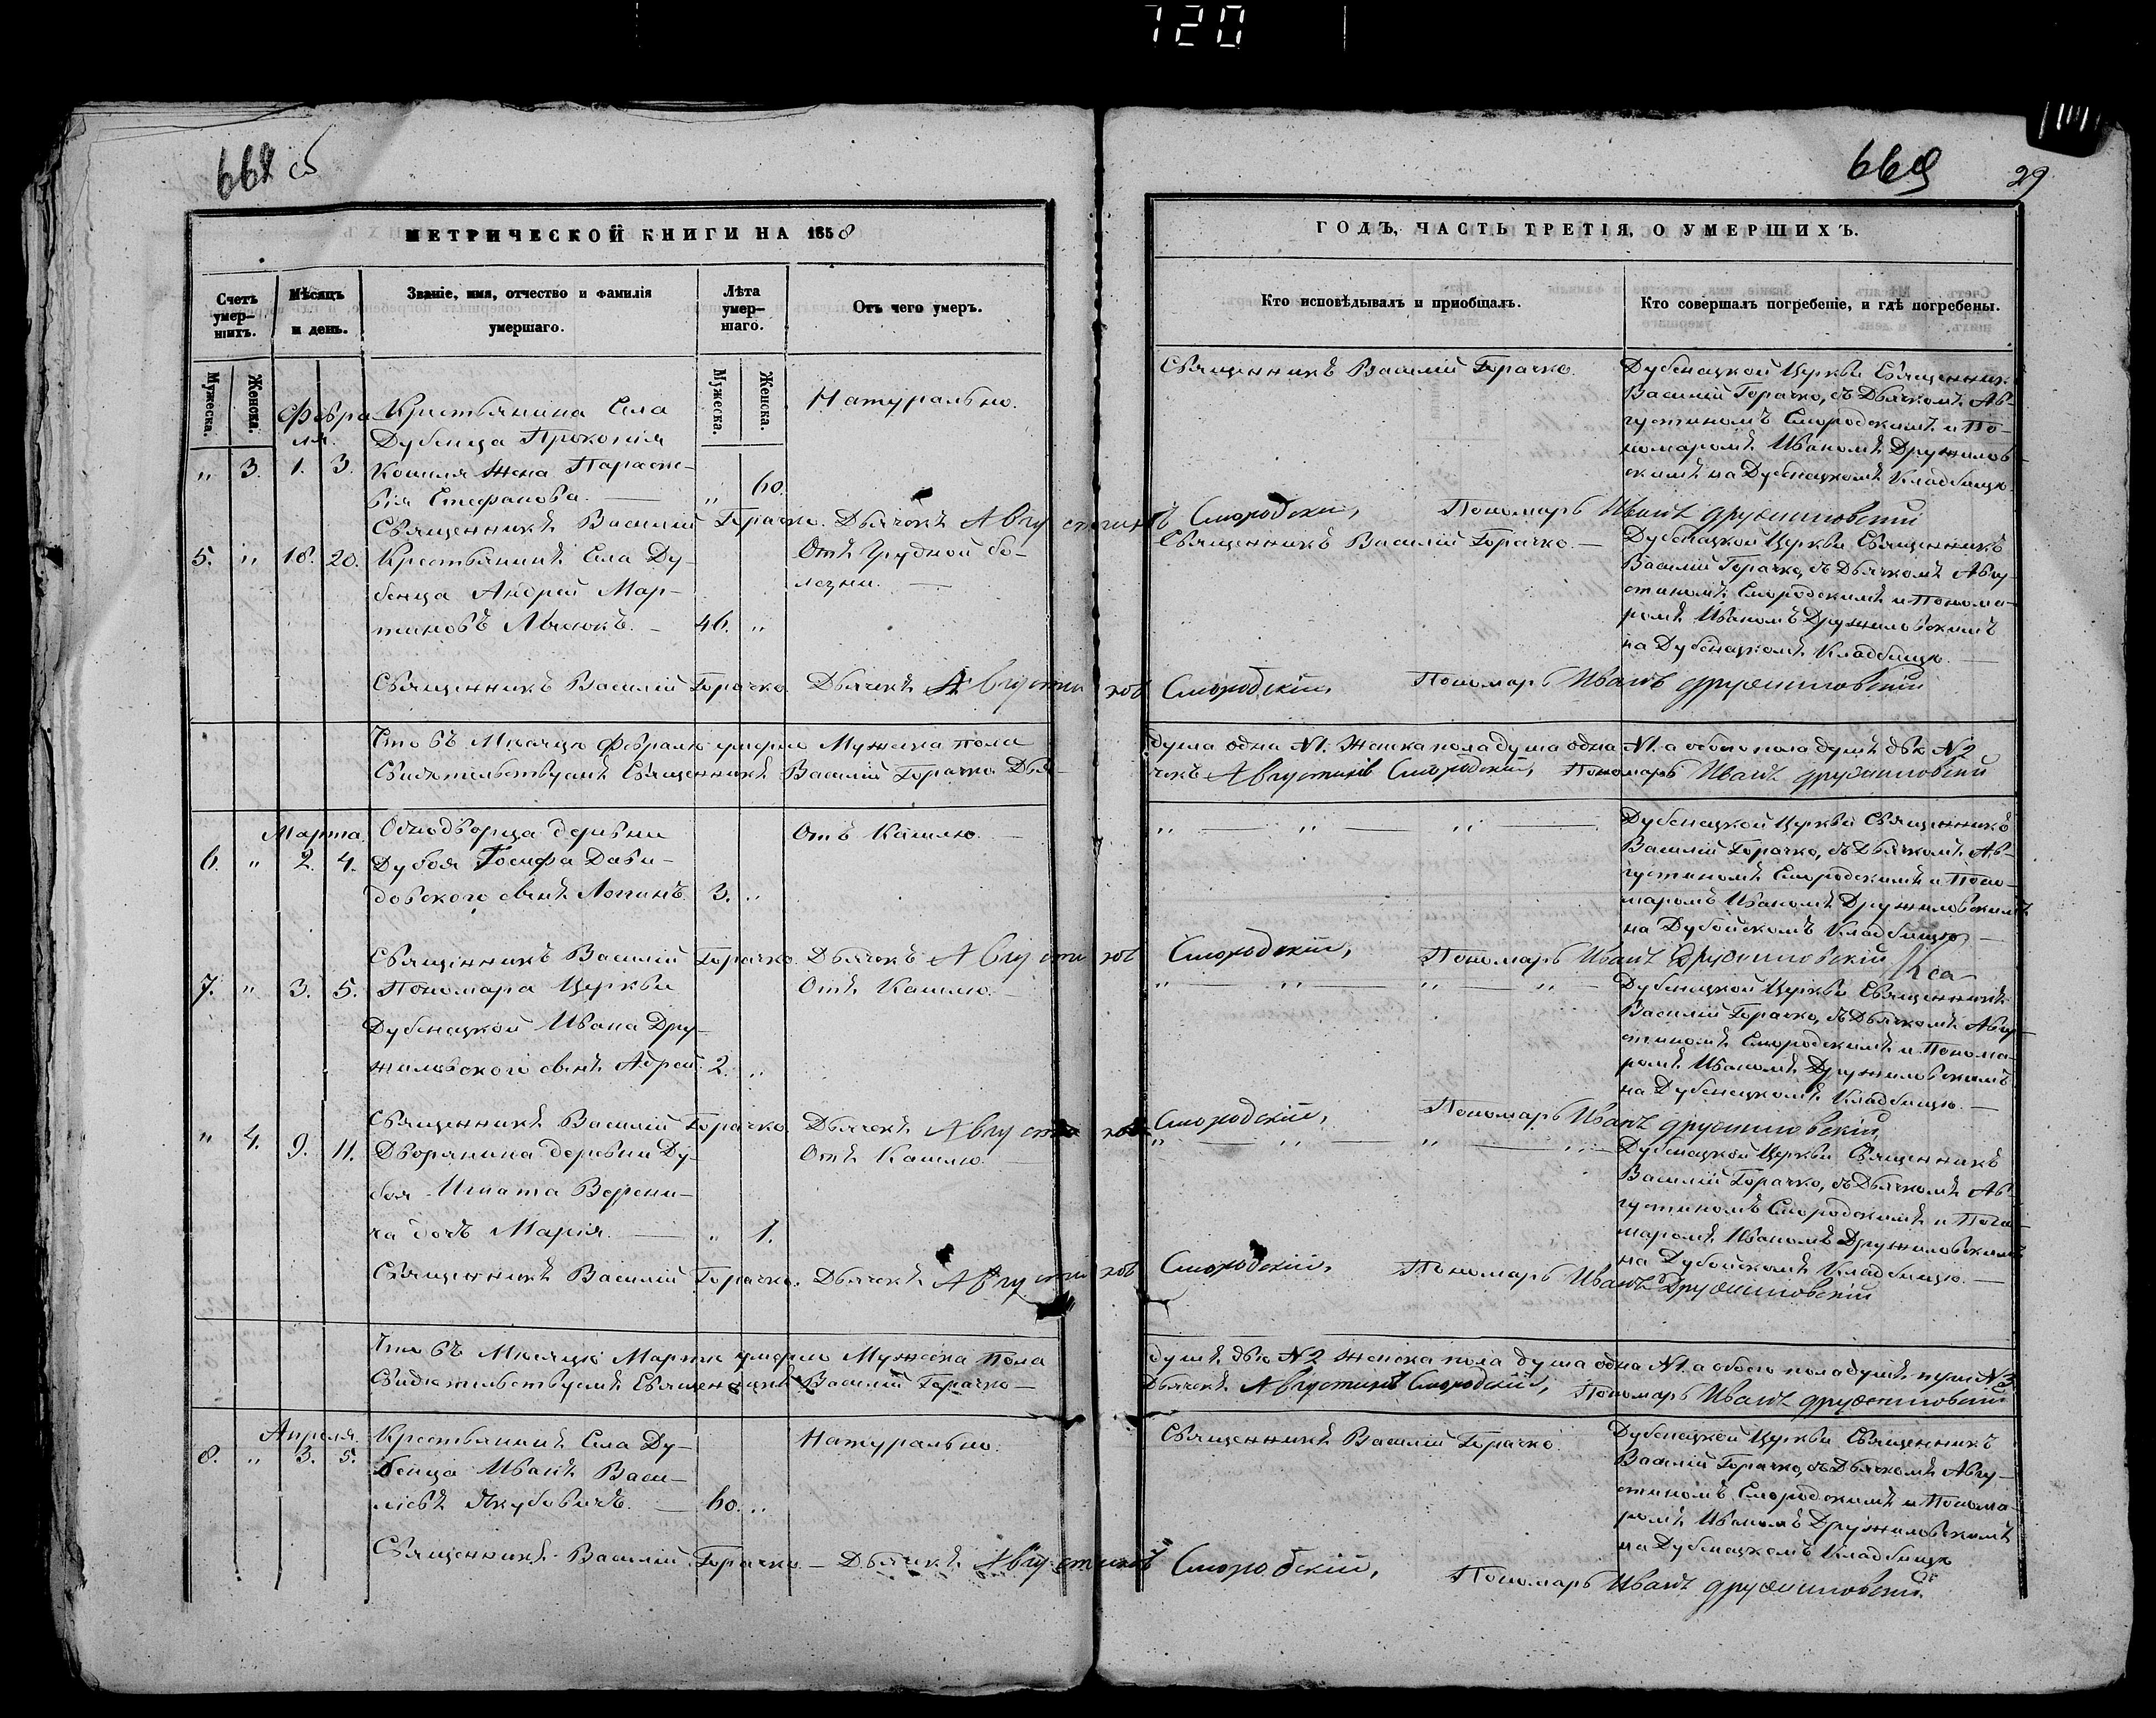 720
668 об
669
29
МЕТРИЧЕСКОЙ КНИГИ НА 1858
ГОДЪ, ЧАСТЬ ТРЕТІЯ, О УМЕРШИХЪ.
Счетъ умер-
шихъ.
Мѣсяцъ
и день.
Званіе, имя, отчество и фамилія
умершаго.
Лѣта
умер-
шаго.
Отъ чего умеръ.
Кто исповѣдывалъ и приобщалъ.
Кто совершалъ погребеніе, и гдѣ погребены.
Мужеска.
Женска.
Мужеска.
Женска.
Февра
ля.
" 3. 1. 3.
Крестьянина Села
Дубенца Прокопія
Кошля жена Параске-
вія Стефанова. —
" 60.
Натурально.
Священникъ Василій Горачко.
Дубенецкой Церкви Священник
Василій Горачко, съ Дьячкомъ Ав-
густиномъ Смородскимъ и По-
номаромъ Иваномъ Дружилов-
скимъ на Дубенецкомъ Кладбищѣ
Священникъ Василій Горачко. Дьячекъ Августинъ Смородскій, Пономарь Иванъ Дружиловскій
5. " 18. 20.
Крестьянинъ Села Ду-
бенца Андрей Мар-
тиновъ —
46. "
Отъ Грудной бо-
лезни. —
Священникъ Василій Горачко. —
Дубенецкой Церкви Священникъ
Василій Горачко, съ Дьячкомъ Авгу-
стиномъ Смородскимъ и Понома-
ромъ Иваномъ Дружиловскимъ
на Дубенецкомъ Кладбищѣ. —
Священникъ Василій Горачко Дьячекъ Августинъ Смородскій, Пономарь Иванъ Дружиловскій
Что въ Месяцѣ Февралѣ умерло Мужеска пола душа одна №1. Женска пола душа одна №1. а обоего пола душъ двѣ №2
Свидѣтельствуемъ Священникъ Василій Горачко Дья-чекъ Августинъ Смородскій, Пономарь Иванъ Дружиловскій
Марта
6. " 2. 4.
Однодворца деревни
Дубоя Іосифа Дави-
довского сынъ Логинъ
3. "
Отъ Кашлю. —
" — " — " —
Дубенецкой Церкви Священникъ
Василій Горачко, съ Дьячкомъ Ав-
густиномъ Смородскимъ и Поно-
маромъ Иваномъ Дружиловскимъ
на Дубойскомъ Кладбищѣ —
Священникъ Василій Горачко Дьячекъ Августинъ Смородскій, Пономарь Иванъ Дружиловскій
7. " 3. 5.
Пономара Церкви
Дубенецкой Ивана Дру-
жиловского сынъ
2. "
Отъ Кашлю. —
" — " — " — " —
Дубенецкой Церкви Священникъ
Василій Горачко, съ Дьячкомъ Авгу-
стиномъ Смородскимъ и Понома-
ромъ Иваномъ Дружиловскимъ
на Дубенецкомъ Кладбищѣ. —
Священникъ Василій Горачко Дьячекъ Августинъ Смородскій, Пономарь Иванъ Дружиловскій
" 4. 9. 11.
Дворянина деревни Ду-
боя Игната Верени-
ча дочь Марія. —
" 1.
Отъ Кашлю. —
" — " — " — " —
Дубенецкой Церкви Священникъ
Василій Горачко, съ Дьячкомъ Ав-
густиномъ Смородскимъ и Поно-
маромъ Иваномъ Дружиловскимъ
на Дубойскомъ Кладбищѣ. —
Священникъ Василій Горачко. Дьячекъ Августинъ Смородскій, Пономарь Иванъ Дружиловскій
Что въ Месяцѣ Мартѣ умерло Мужеска Пола душъ двѣ №2 женска пола душа одна №1. а обоего пола душъ три №3
Свидѣтельствуемъ Священникъ Василій Горачко — Дьячекъ Августинъ Смородскій, Пономарь Иванъ Дружиловскій
Апреля.
8. " 3. 5.
Крестьянинъ Села Ду-
бенца Иванъ Васи-
ліевъ Якубовичъ. —
60. "
Натурально.
Священникъ Василій Горачко.
Дубенецкой Церкви Священникъ
Василій Горачко, съ Дьячкомъ Авгу-
стиномъ Смородскимъ и Понома-
ромъ Иваномъ Дружиловскимъ
на Дубенецкомъ Кладбищѣ
Священникъ Василій Горачко — Дьячекъ Августинъ Смородскій, Пономарь Иванъ Дружиловскій